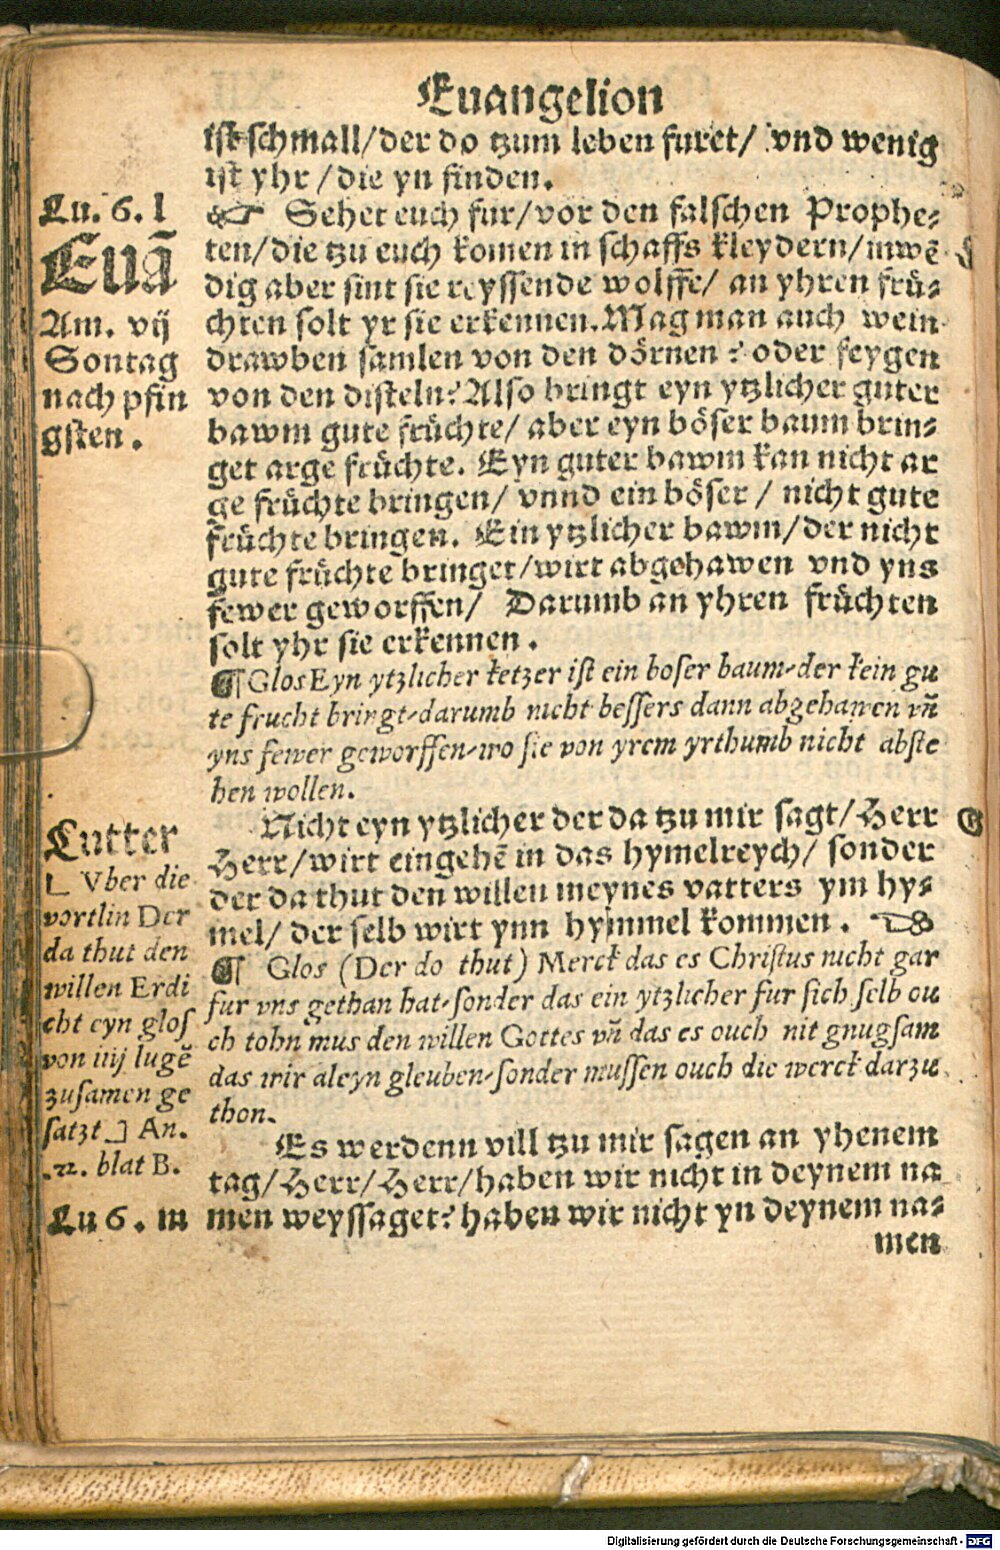 Euangelion
ist schmall/der do tzum leben furet/ vnd wenig
ist yhr/die yn finden.
☞ Sehet euch fur/vor den falschen Prophe⸗
ten/die tzu euch komen in schaffs kleydern/inwē
dig aber sint sie reyssende wolffe/ an yhren frü⸗
chten solt yr sie erkennen. Mag man auch wein
drawben samlen von den dörnen? oder feygen
von den disteln? Also bringt eyn ytzlicher guter
bawm gute früchte/ aber eyn böser baum brin⸗
get arge früchte. Eyn guter bawm kan nicht ar
ge früchte bringen/ vnnd ein böser/ nicht gute
früchte bringen. Ein ytzlicher bawm/der nicht
gute früchte bringet/wirt abgehawen vnd yns
fewer geworffen/ Darumb an yhren früchten
solt yhr sie erkennen.
¶ Glos Eyn ytzlicher ketzer ist ein boser baum/der kein gu
te frucht bringt/darumb nicht bessers dann abgehawen vñ
yns fewer geworffen/wo sie von yrem yrthumb nicht abste
hen wollen.
Nicht eyn ytzlicher der da tzu mir sagt/Herr
Herr/wirt eingehē in das hymelreych/ sonder
der da thut den willen meynes vatters ym hy⸗
mel/ der selb wirt ynn hymmel kommen. ☜
¶ Glos (Der do thut) Merck das es Christus nicht gar
fur vns gethan hat/sonder das ein ytzlicher fur sich selb ou
ch tohn mus den willen Gottes vñ das es ouch nit gnugsam
das wir aleyn gleuben/sonder mussen ouch die werck darzu
thon.
Es werdenn vill tzu mir sagen an yhenem
tag/Herr/Herr/haben wir nicht in deynem na
men weyssaget? haben wir nicht yn deynem na⸗
men
Lu. 6. l
Euā
Am. vij
Sontag
nach pfin
gsten.
Lutter
[ Vber die
wortlin Der
da thut den
willen Erdi
cht eyn glos
von iiij lugē
zusamen ge
satzt ] An.
.72. blat B.
Lu 6. m
G
Digitalisierung gefördert durch die Deutsche Forschungsgemeinschaft - DFG